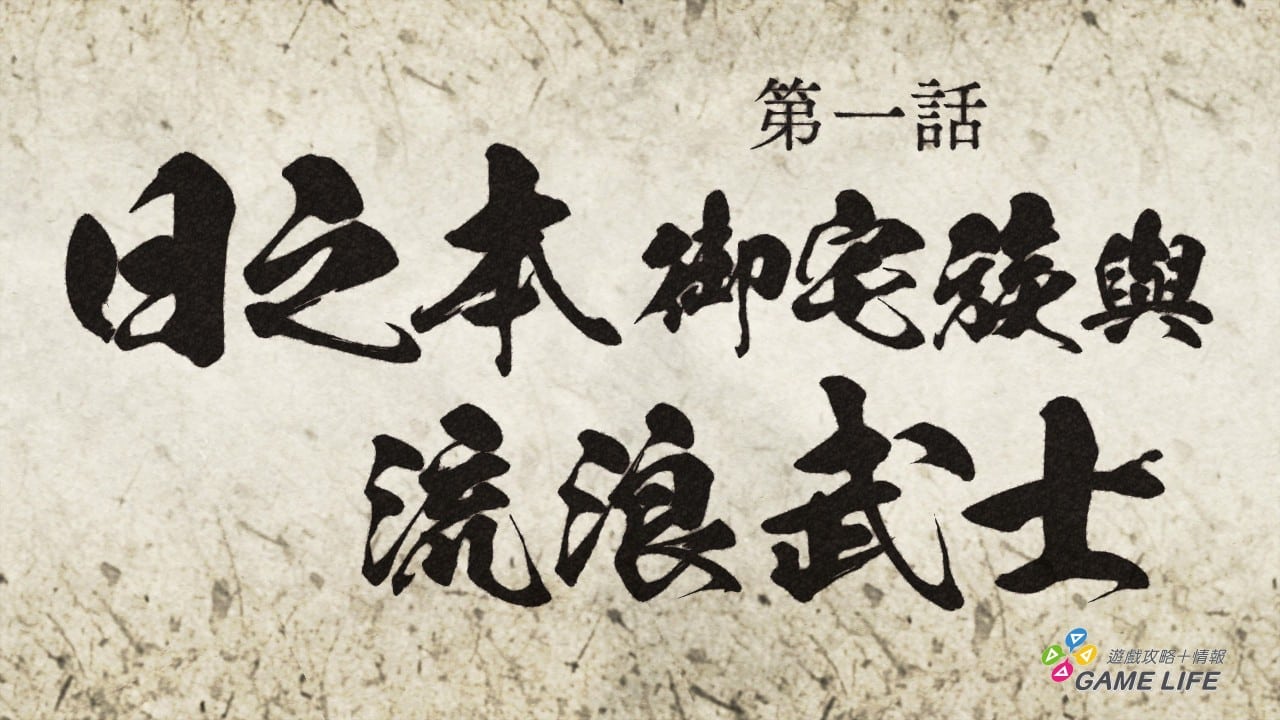 第一話
日之本御宅族與
流浪武士
遊戲攻略+情報
GAME LIFE